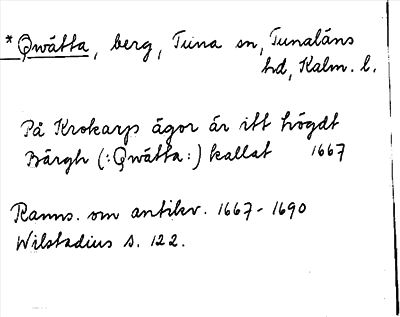 * Qwätta, berg, Tuna sn, Tunaläns
hd, Kalm. l.
På Krokarps ägor är itt högdt
Bärgh (: Qwätta :) kallat 1667
Ranns. om antikv. 1667-1690
Wilstadius s. 122.